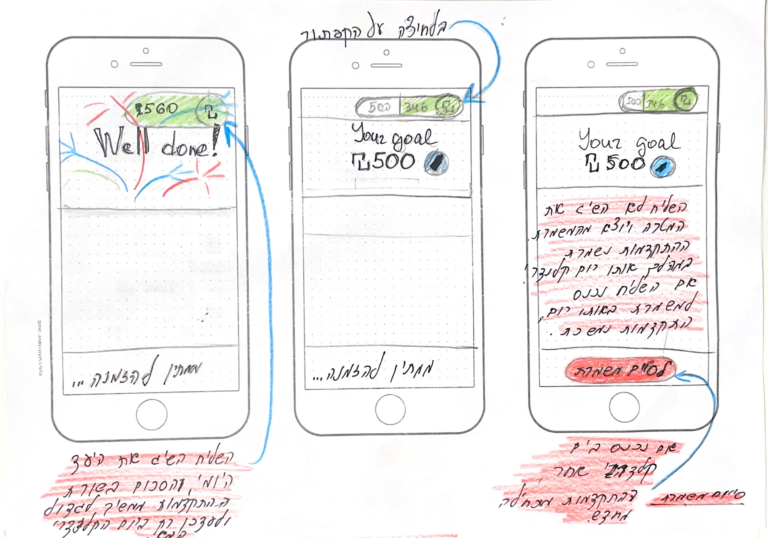 בלחיצה על הכפתור
₪ 560
Well done!
ממתין להזמנה...
השליח השיג את היעד
היומי, הסכום בשורת
ההתקדמות ממשיך לגדול
רק ביום הקלנדרי
500 346 ₪
Your goal
₪500
ממתין להזמנה...
500 346 ₪
Your goal
₪500
השליח לא השיג את
המטרה ויוצא מהמשמרת.
ההתקדמות נשמרת
במהלך אותו יום קלנדרי
אם השליח נכנס
למשמרת באותו יום,
התקדמות נמשכת.
לסיים משמרת
אם נכנס ביום
קלנדרי אחר,
ההתקדמות מתחילה
מחדש.
סיום משמרת